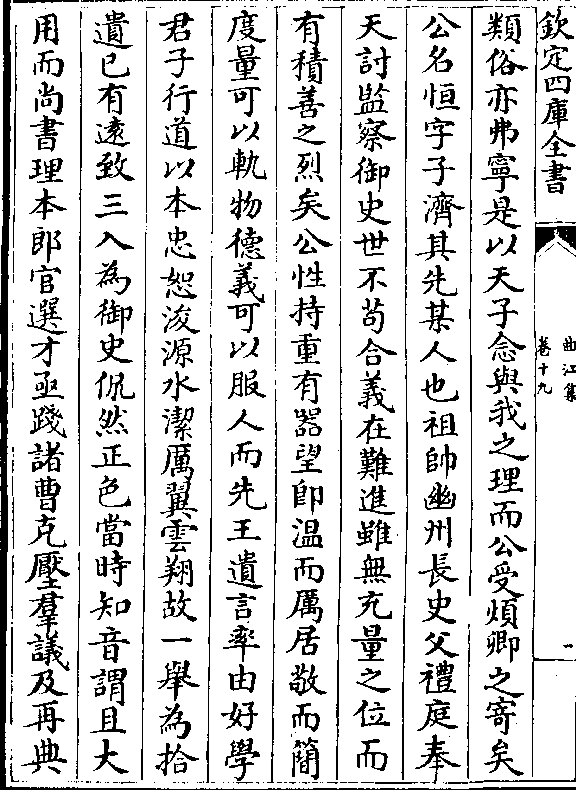 欽定四庫全書
曲江集
卷十九
一
類俗亦弗寧是以天子念與我之理而公受煩卿之寄矣
公名恒字子濟其先某人也祖帥幽州長史父禮庭奉
天討監察御史世不苟合義在難進雖無充量之位而
有積善之烈矣公性持重有器望即温而厲居敬而簡
度量可以軌物德義可以服人而先王遺言率由好學
君子行道以本忠恕浚源水潔厲翼雲翔故一舉為拾
遺已有遠致三入為御史侃然正色當時知音謂且大
用而尚書理本郎官選才亟踐諸曹克壓羣議及再典